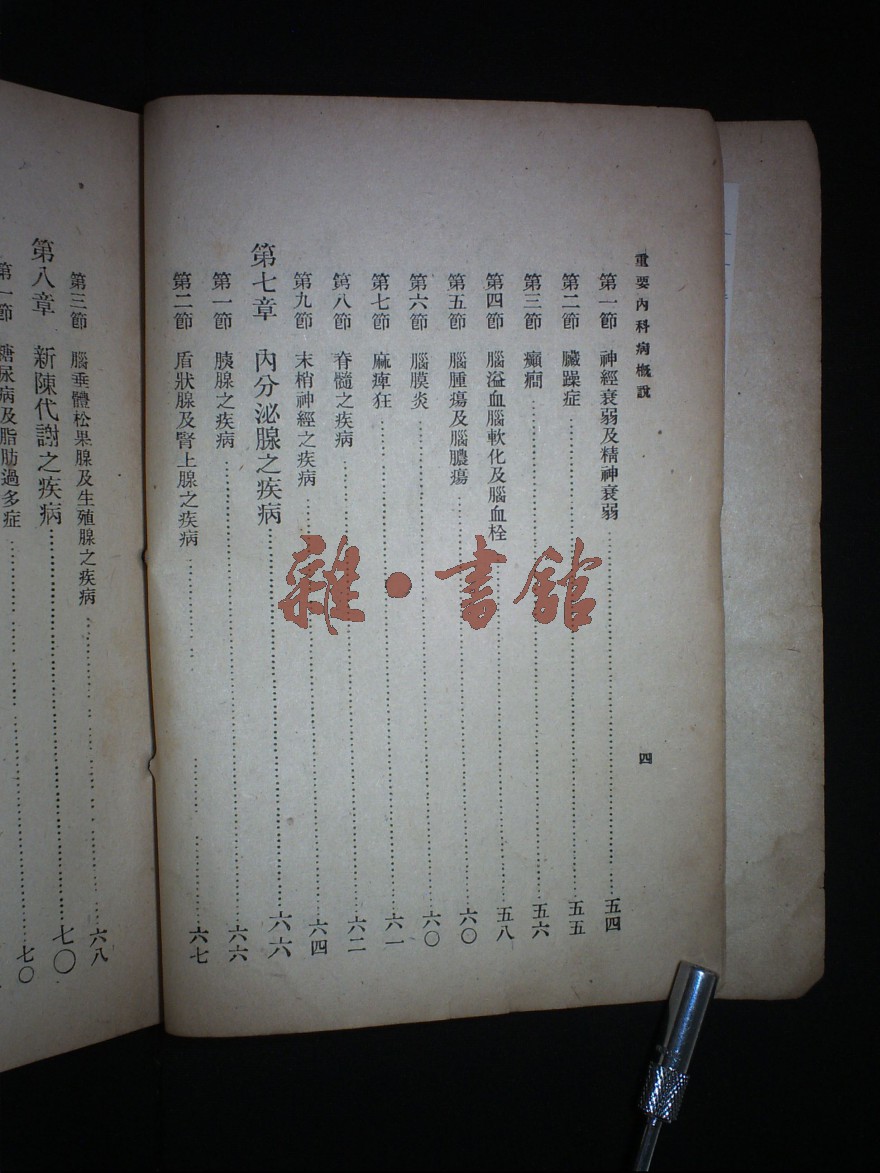 重要內科病概說
四
第一節 神經衰弱及精神衰弱……五四
第二節 臟躁症……五五
第三節 癲癇……五六
第四節 腦溢血腦軟化及腦血栓……五八
第五節 腦腫瘍及腦膿瘍……六〇
第六節 腦膜炎……六〇
第七節 麻痺狂……六一
第八節 脊髓之疾病……六二
第九節 末梢神經之疾病……六四
第七章 內分泌腺之疾病……六六
第一節 胰腺之疾病……六六
第二節 盾狀腺及腎上腺之疾病……六七
第三節 腦垂體松果腺及生殖腺之疾病……六八
第八章 新陳代謝之疾病……七〇
第一節 糖尿病及脂肪過多症……七〇
雜·書館